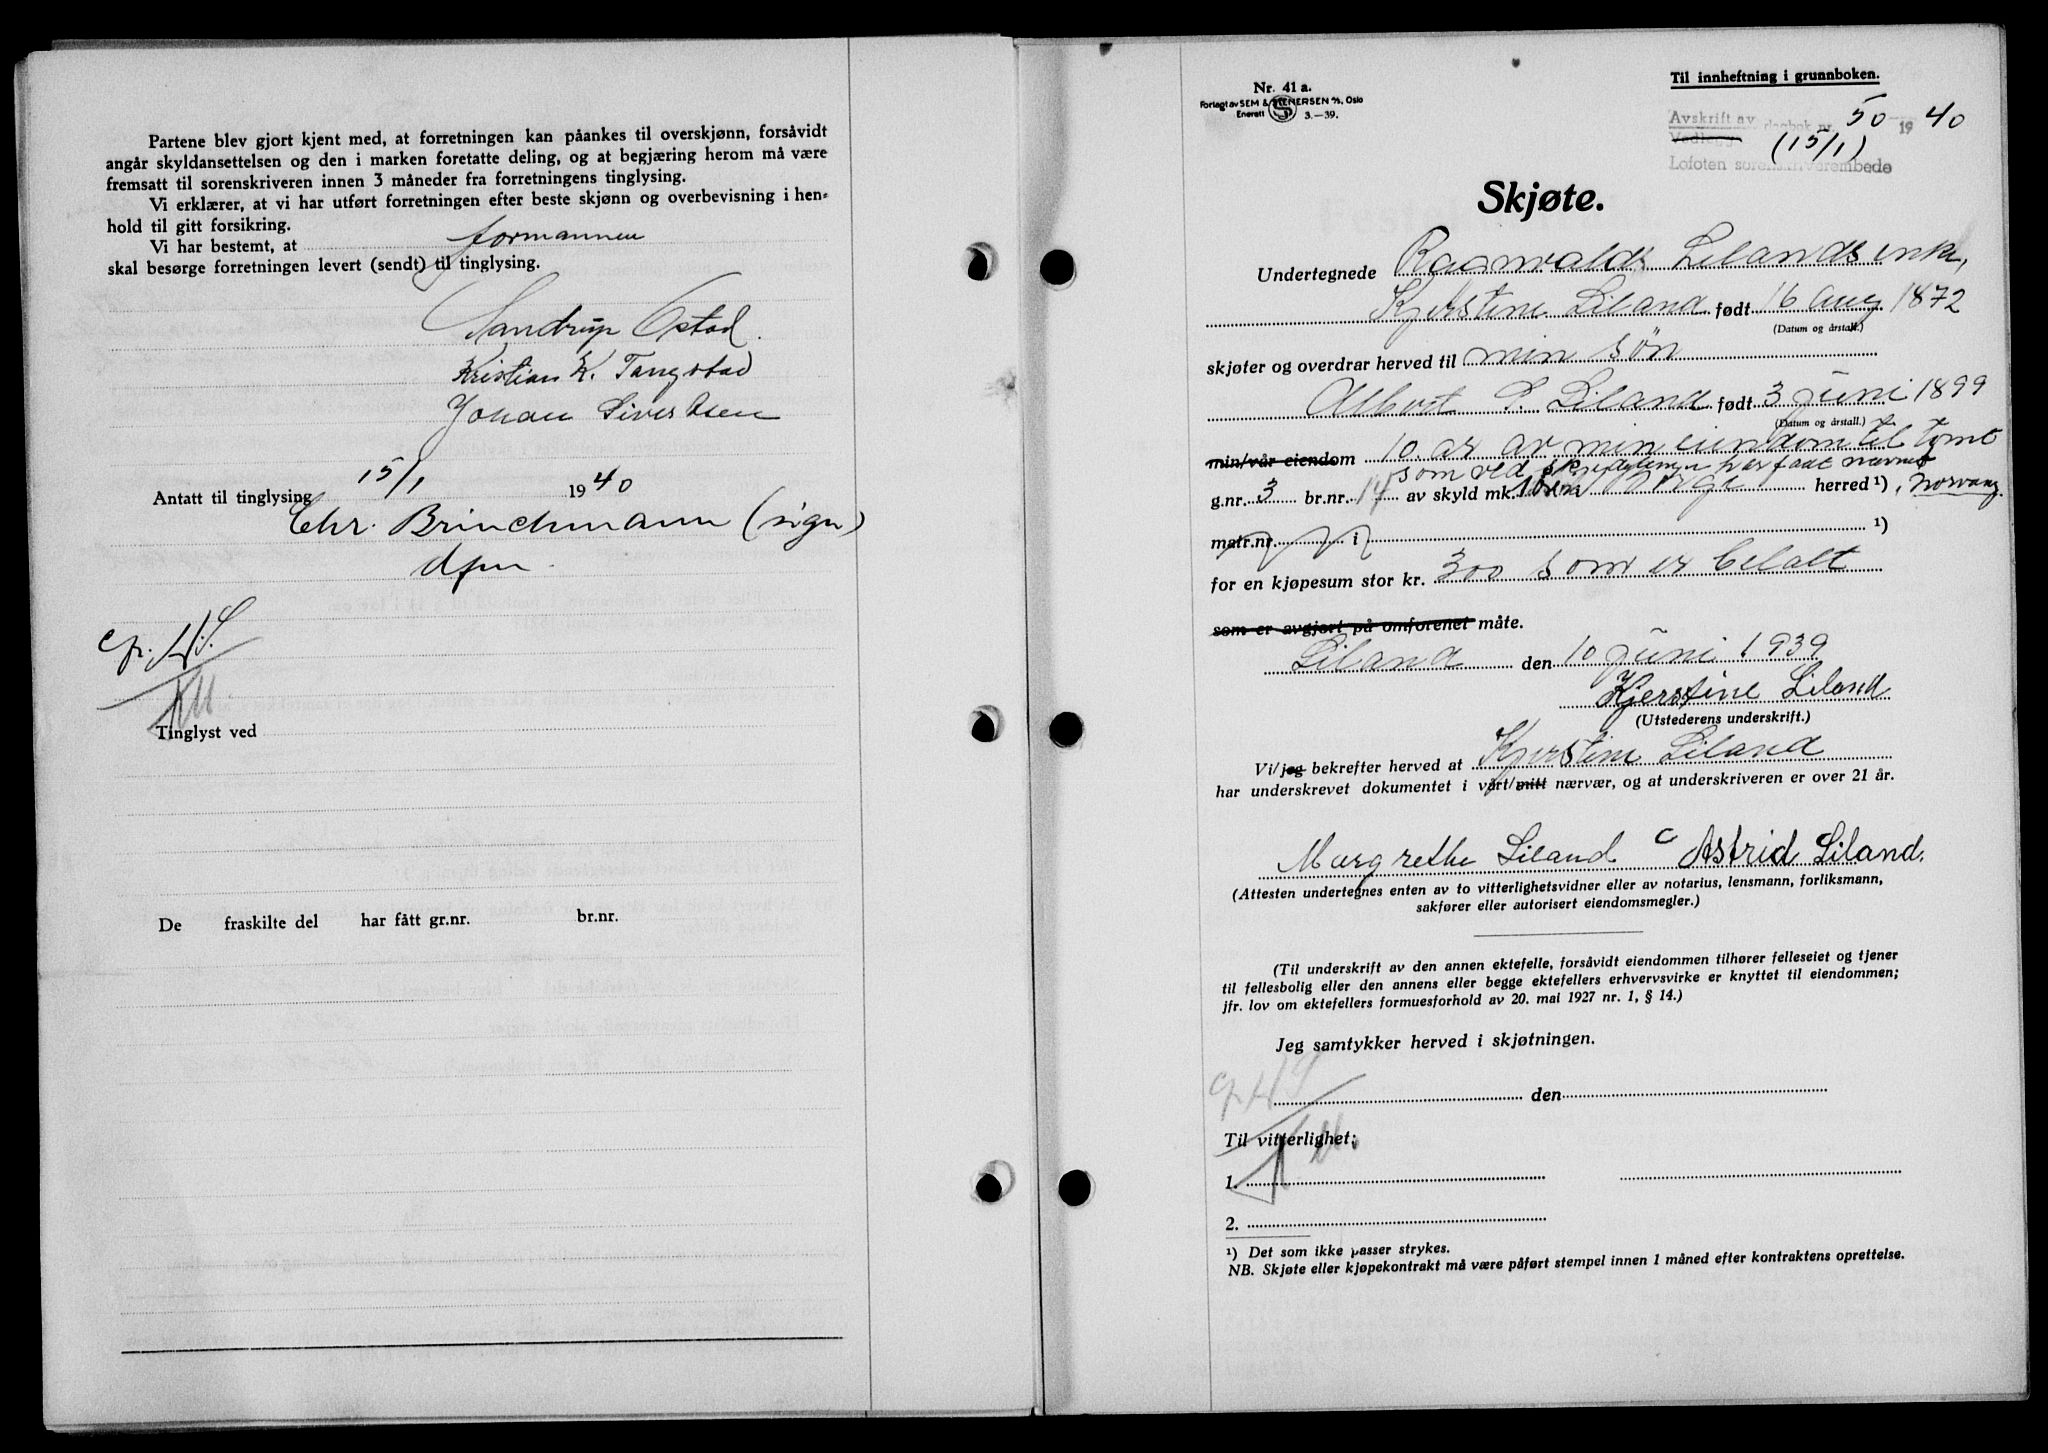 Partene blev gjort kjent med, at forretningen kan påankes til overskjønn, forsåvidt
angår skyldansettelsen og den i marken foretatte deling, og at begjæring herom må være
fremsatt til sorenskriveren innen 3 måneder fra forretningens tinglysing.
Vi erklærer, at vi har utført forretningen efter beste skjønn og overbevisning i hen-
hold til gitt forsikring.
Vi har bestemt, at formannen
skal besørge forretningen levert (sendt) til tinglysing.
Sandrup Opstad.
Kristian K. Tangstad
Johan Sivertsen
Antatt til tinglysing 15/1 1940
Chr. Brinchmann (sign)
dfm.
cfr. H.S.
Tinglyst ved
De fraskilte del har fått gr.nr. br.nr.
Til innheftning i grunnboken.
Nr. 41 a.
Forlagt av SEM & STENERSEN A/S, Oslo
Enerett 3.—39.
Avskrift av dagbok nr. 50 1940
Vedlegg (15/1)
Lofoten sorenskriverembede
Skjøte.
Undertegnede Ragnvald Lilands enke,
Kjerstine Liland født 16 aug 1872
(Datum og årstall.)
skjøter og overdrar herved til min søn
Albert S. Liland født 3 juni 1899
(Datum og årstall.)
min/vår eiendom 10 ar av min eiendom til tomt
som ved skyldelingen har faat navnet
g.nr. 3 br.nr. 14 av skyld mk. 1 øre i Borge herred ¹), Norvang.
matr.nr. i ¹)
for en kjøpesum stor kr. 300 som er betalt
som er avgjort på omforenet måte.
Liland den 10 juni 1939
Kjerstine Liland
(Utstederens underskrift.)
Vi/jeg bekrefter herved at Kjerstine Liland
har underskrevet dokumentet i vårt/mitt nærvær, og at underskriveren er over 21 år.
Margrethe Liland Astrid Liland.
(Attesten undertegnes enten av to vitterlighetsvidner eller av notarius, lensmann, forliksmann,
sakfører eller autorisert eiendomsmegler.)
(Til underskrift av den annen ektefelle, forsåvidt eiendommen tilhører felleseiet og tjener
til fellesbolig eller den annens eller begge ektefellers erhvervsvirke er knyttet til eiendommen;
jfr. lov om ektefellers formuesforhold av 20. mai 1927 nr. 1, § 14.)
Jeg samtykker herved i skjøtningen.
cfr. H.S.
den
Til vitterlighet:
1.
2.
¹) Det som ikke passer strykes.
NB. Skjøte eller kjøpekontrakt må være påført stempel innen 1 måned efter kontraktens oprettelse.